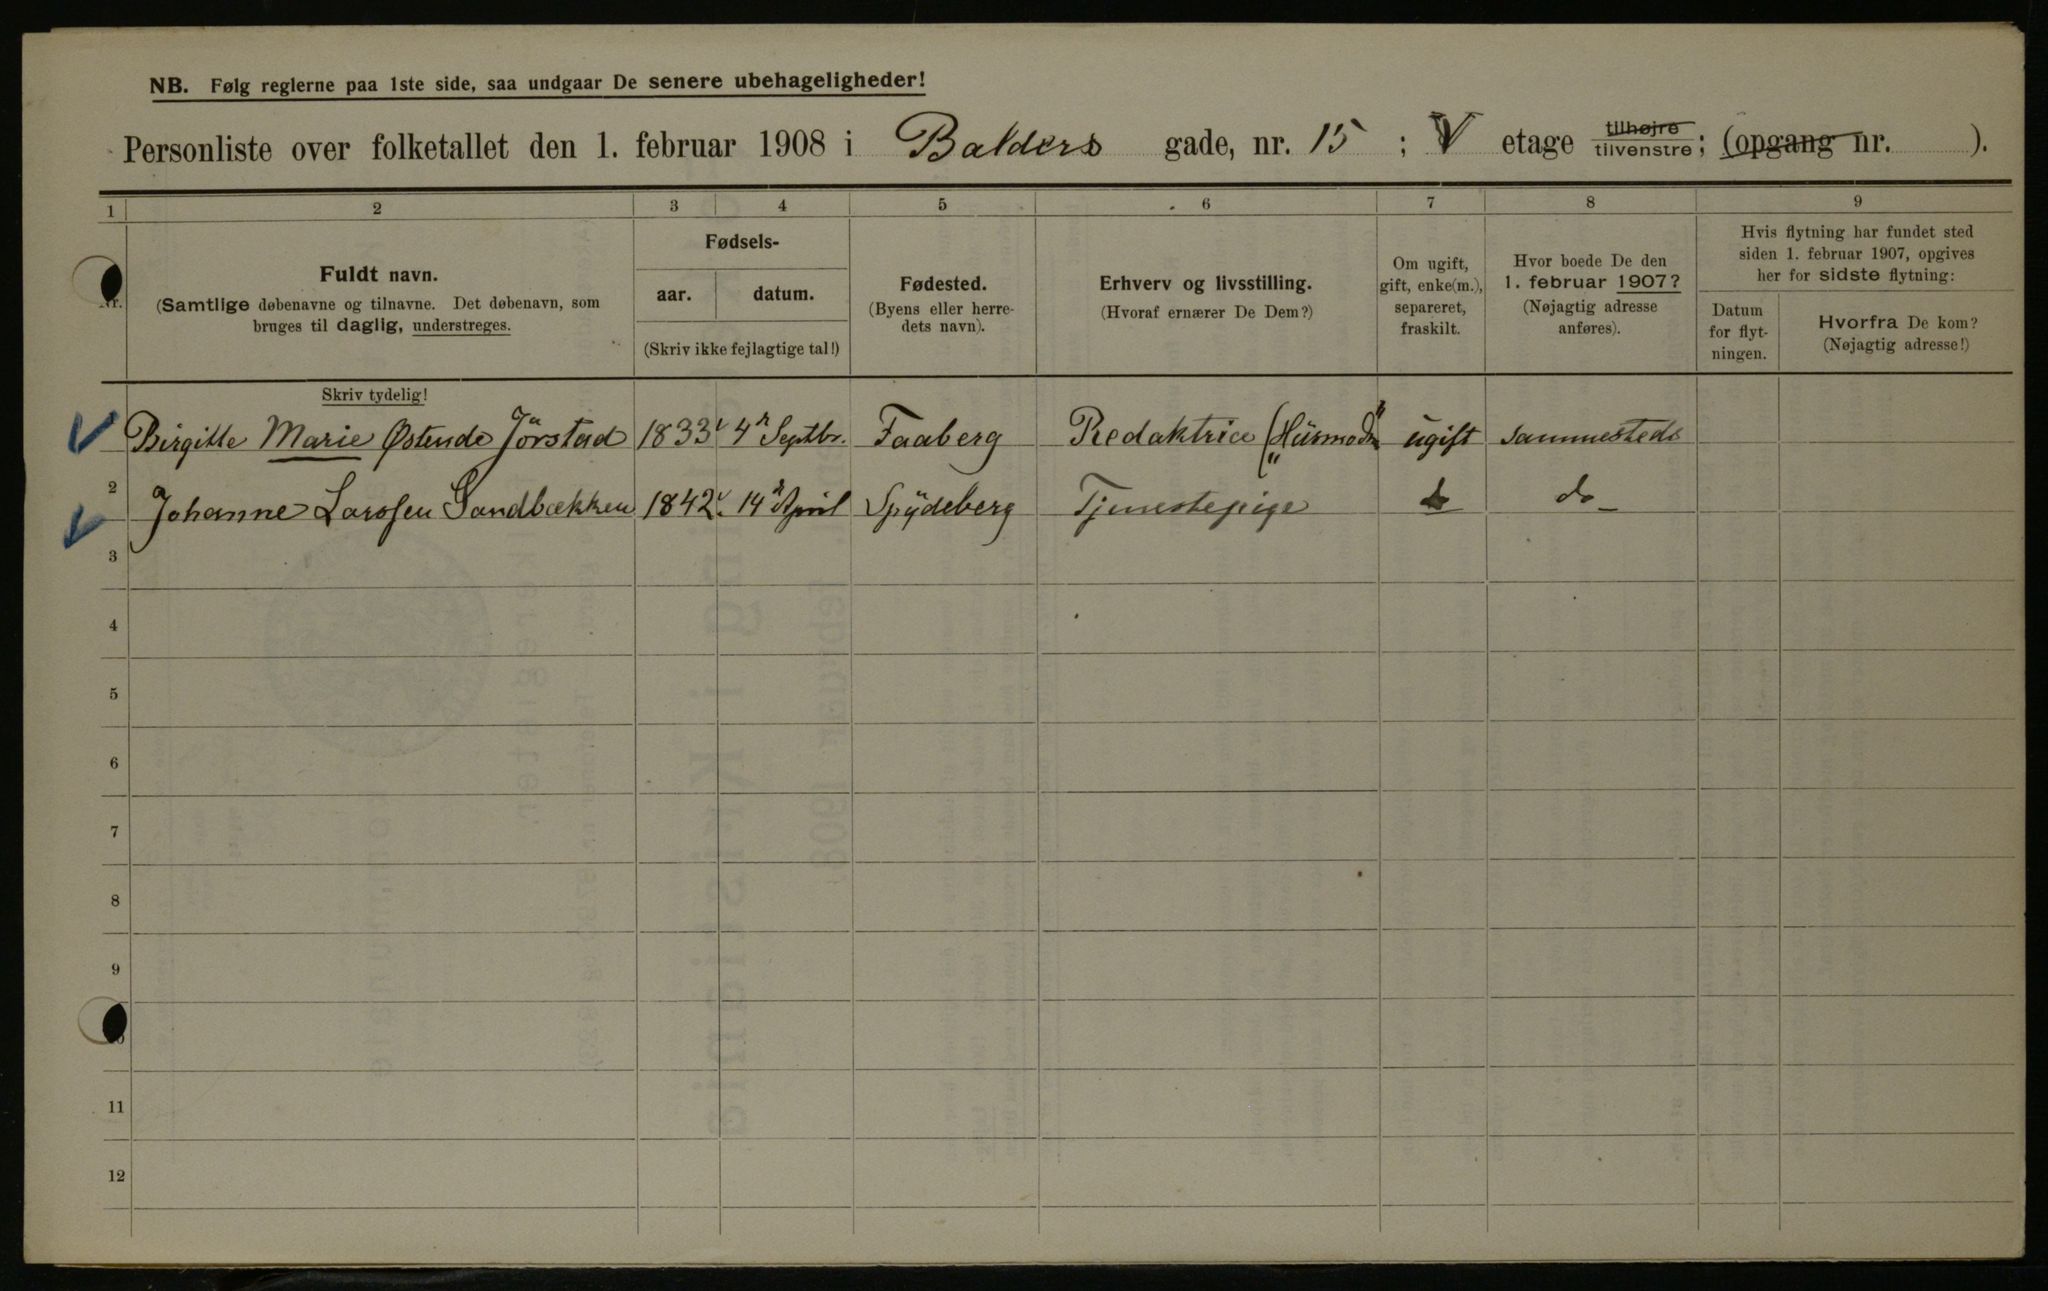 NB. Følg reglerne paa 1ste side, saa undgaar De senere ubehageligheder!
Personliste over folketallet den 1. februar 1908 i Balders gade, nr. 15 ; V etage tilhøjre tilvenstre; (opgang nr. ).
1 2 3 4 5 6 7 8 9
Nr.
Fuldt navn.
(Samtlige døbenavne og tilnavne. Det døbenavn, som
bruges til daglig, understreges.
Skriv tydelig!
Fødsels-
aar. datum.
(Skriv ikke fejlagtige tal!)
Fødested.
(Byens eller herre-
dets navn).
Erhverv og livsstilling.
(Hvoraf ernærer De Dem?)
Om ugift,
gift, enke(m.),
separeret,
fraskilt.
Hvor boede De den
1. februar 1907?
(Nøjagtig adresse
anføres).
Hvis flytning har fundet sted
siden 1. februar 1907, opgives
her for sidste flytning:
Datum
for flyt-
ningen.
Hvorfra De kom?
(Nøjagtig adresse!)
Birgitte Marie Østende Jörstad 1833 4 Septbr. Faaberg Redaktrice ugift sammesteds
2 Johanne Larssen Sandbækken 1842. 14 April Spydeberg Tjenestepige do do
3
4
5
6
7
8
9
10
11
12